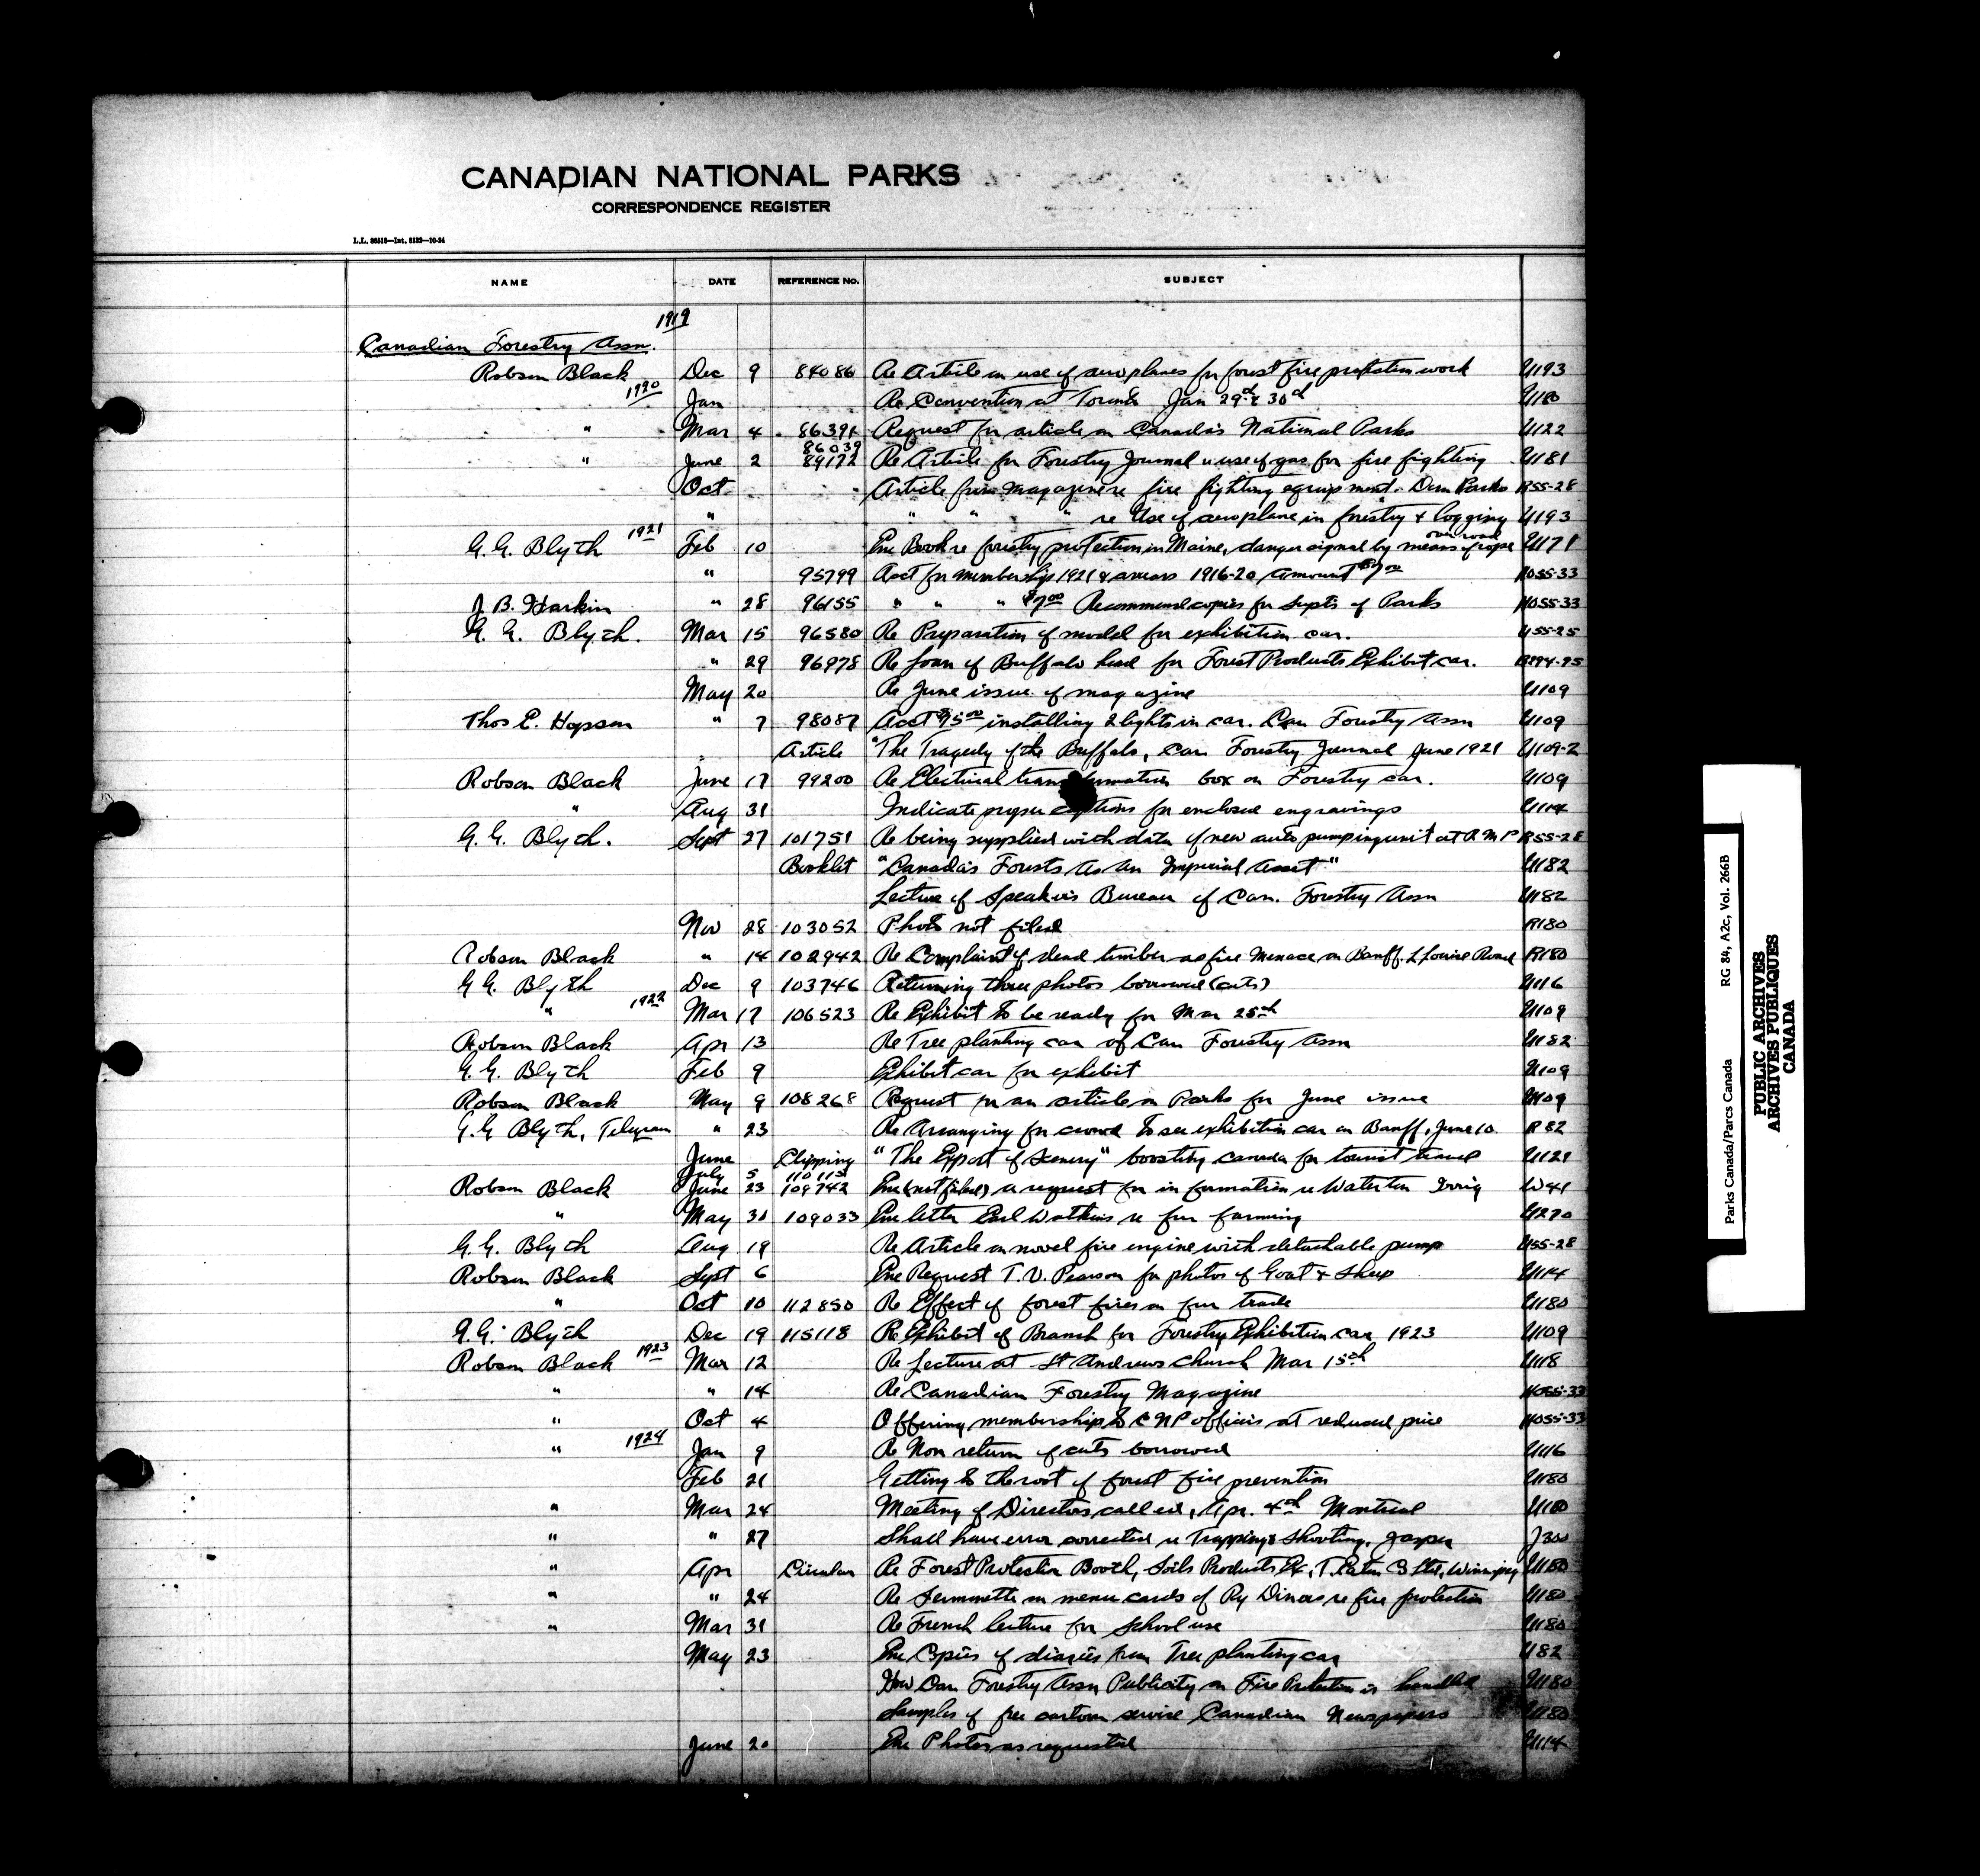 CANADIAN NATIONAL PARKS
CORRESPONDENCE REGISTER
L.L. 86518—Int. 8133—10-24
NAME DATE REFERENCE No. SUBJECT
1919
Canadian Forestry Assn.
Robson Black Dec 9 84086 Re Article on use of aeroplanes for forest fire protection work U193
1920 Jan Re Convention at Toronto Jan 29th & 30th U180
" Mar 4 86391 Request for article on Canada's National Parks U122
86039
" June 2 89172 Re Article for Forestry Journal re use of gas for fire fighting U181
Oct Article from magazine re fire fighting equipment. Dom Parks R55-28
" " " " re Use of aeroplane in forestry & logging U193
over road
G.G. Blyth 1921 Feb 10 Enc Book re forestry protection in Maine, danger signal by means of rope U171
" 95799 Acct for membership 1921 & arrears 1916-20 Amount $7.00 HO55-33
J.B. Harkin " 28 96155 " " " $7.00 Recommend copies for Supts of Parks HO55-33
G.G. Blyth. Mar 15 96580 Re Preparation of model for exhibition car. U55-25
" 29 96978 Re Loan of Buffalo head for Forest Products Exhibit car.
May 20 Re June issue of magazine U109
Thos E. Hopson " 7 98087 Acct $95.00 installing 2 lights in car. Can Forestry Assn U109
Article "The Tragedy of the Buffalo, Can Forestry Journal June 1921 U109-2
Robson Black June 17 99200 Re Electrical transformation box on Forestry car. U109
" Aug 31 Indicate proper captions for enclosed engravings U114
G.G. Blyth. Sept 27 101751 Re being supplied with data of new auto pumping unit at R M P R55-28
Booklet "Canada's Forests As An Imperial Asset" U182
Lecture of Speakers Bureau of Can. Forestry Assn U182
Nov 28 103052 Photo not filed R180
Robson Black " 14 102942 Re Complaint of dead timber as fire Menace on Banff-L Louise Road R180
G.G. Blyth Dec 9 103746 Returning three photos borrowed (cuts) U116
" 1922 Mar 17 106523 Re Exhibit to be ready for Mar 25th U109
Robson Black Apr 13 Re Tree planting car of Can Forestry Assn U182
G.G. Blyth Feb 9 Exhibit car for exhibit U109
Robson Black May 9 108268 Request for an article on Parks for June issue U109
G.G Blyth, Telegram " 23 Re Arranging for crowd to see exhibition car on Banff, June 10. R 82
June Clipping "The Export of Scenery" boosting Canada for tourist travel U121
July 5 110115
Robson Black June 23 109742 Enc (not filed) re request for information re Waterton W41
" May 30 109033 Enc letter Earl Watkins re fur farming U270
G.G. Blyth Aug 19 Re Article on novel fire engine with detachable pump U55-28
Robson Black Sept 6 Enc Request T.V. Pearson for photos of Goat & Sheep U114
" Oct 10 112850 Re Effect of forest fires on fur trade U180
G.G. Blyth Dec 19 115118 Re Exhibit of Branch for Forestry Exhibition car 1923 U109
Robson Black 1923 Mar 12 Re Lecture at St Andrews Church Mar 15th U118
" " 14 Re Canadian Forestry Magazine HO55-33
" Oct 4 Offering membership to C N P officers at reduced price HO55-33
" 1924 Jan 9 Re Non return of cuts borrowed U116
Feb 21 Getting to the root of forest fire prevention U180
" Mar 24 Meeting of Directors called, Apr. 4th Montreal U180
" " 27 Shall have error corrected re Trapping & Shooting, Jasper J300
" Apr Circular Re Forest Protection Booth, Soils Products Ex, T. Eaton Co Ltd, Winnipeg U180
" " 24 Re on menu cards of Ry Diners re fire protection U180
" Mar 31 Re French lecture for school use U180
May 23 Enc Copies of diaries from Tree planting car U82
How Can Forestry Assn Publicity on Fire Protection is handled U180
Samples of free cartoon service Canadian Newspapers U180
June 20 Enc Photos as requested U114
Parks Canada/Parcs Canada RG 84, A2c, Vol. 266B
PUBLIC ARCHIVES
ARCHIVES PUBLIQUES
CANADA